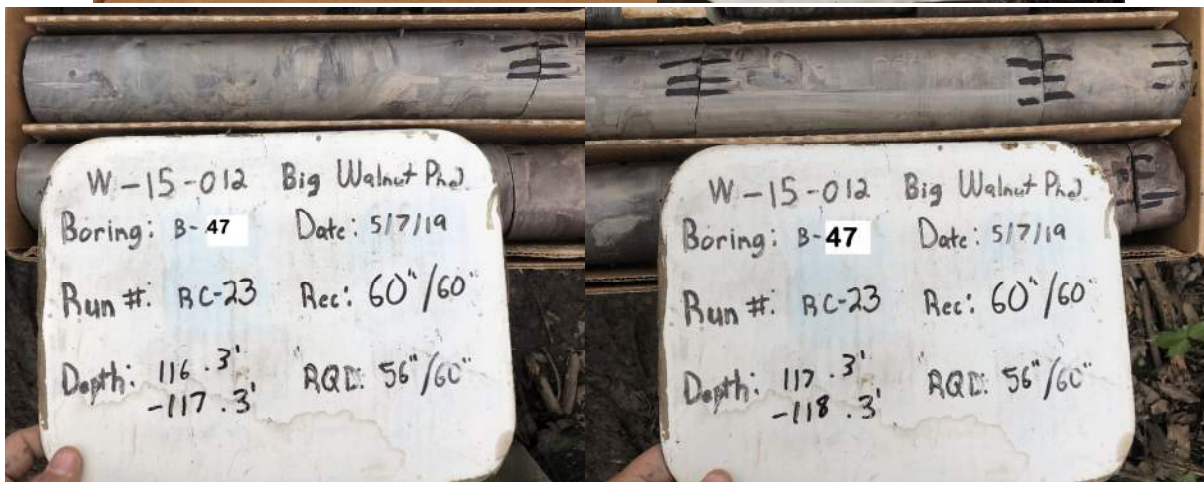 W-15-012 Big Walnut Ph2
Boring: B-47 Date: 5/7/19
Run #: RC-23 Rec: 60"/60"
Depth: 116.3' RQD: 56"/60"
-117.3'
W-15-012 Big Walnut Ph2
Boring: B-47 Date: 5/7/19
Run #: RC-23 Rec: 60"/60"
Depth: 117.3' RQD: 56"/60"
-118.3'